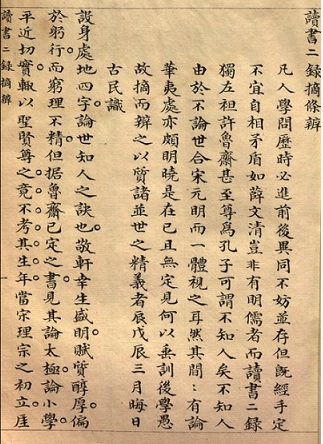 讀書二錄摘條辨
凡人學問歷時必進前後異同不妨並存但既經手定
不宜自相矛盾如薛文清豈非有明儒者而讀書二錄
獨左袒許魯齋甚至尊為孔子可謂不知人矣不知人
由於不論世合宋元明而一體視之耳然其間ː有論
華夷處亦頗明曉是在已且無定見何以垂訓後學愚
故摘而辨之以質諸並世之精義者辰戊辰三月晦日
古民識
設身處地四字論世知人之訣也敬軒幸生盛明賦質醇厚偏
於躬行而窮理不精但据魯齋已定之書見其論太極論小學
平近切實輒以聖賢尊之竟不考其生年當宗理宗之初立厓
讀書二錄摘辨
一